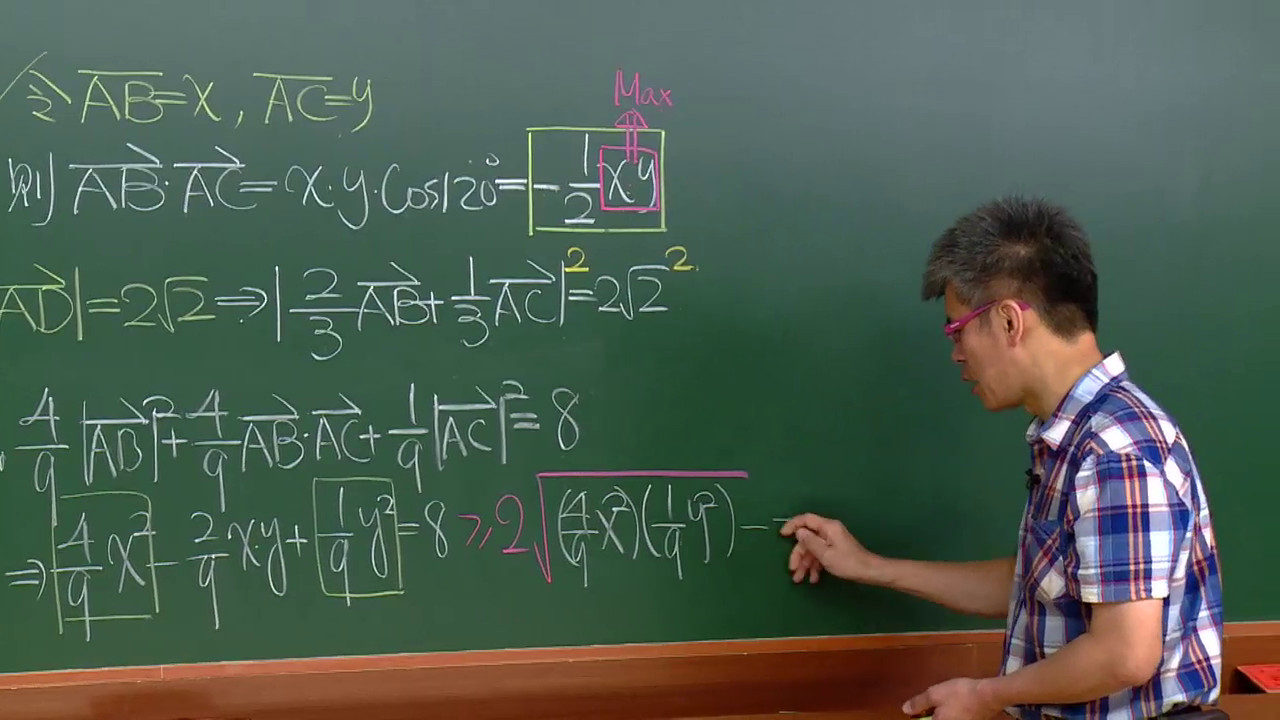 令 AB=x , AC=y
Max
則 AB·AC=x·y·cos120°=-1/2 x·y
AD|=2√2⇒|2/3 AB+1/3 AC|²=2√2²
4/9 |AB|²+4/9 AB·AC+1/9 |AC|²=8
⇒4/9 x²-2/9 x·y+1/9 y²=8≥2√(4/9 x²)(1/9 y²)-